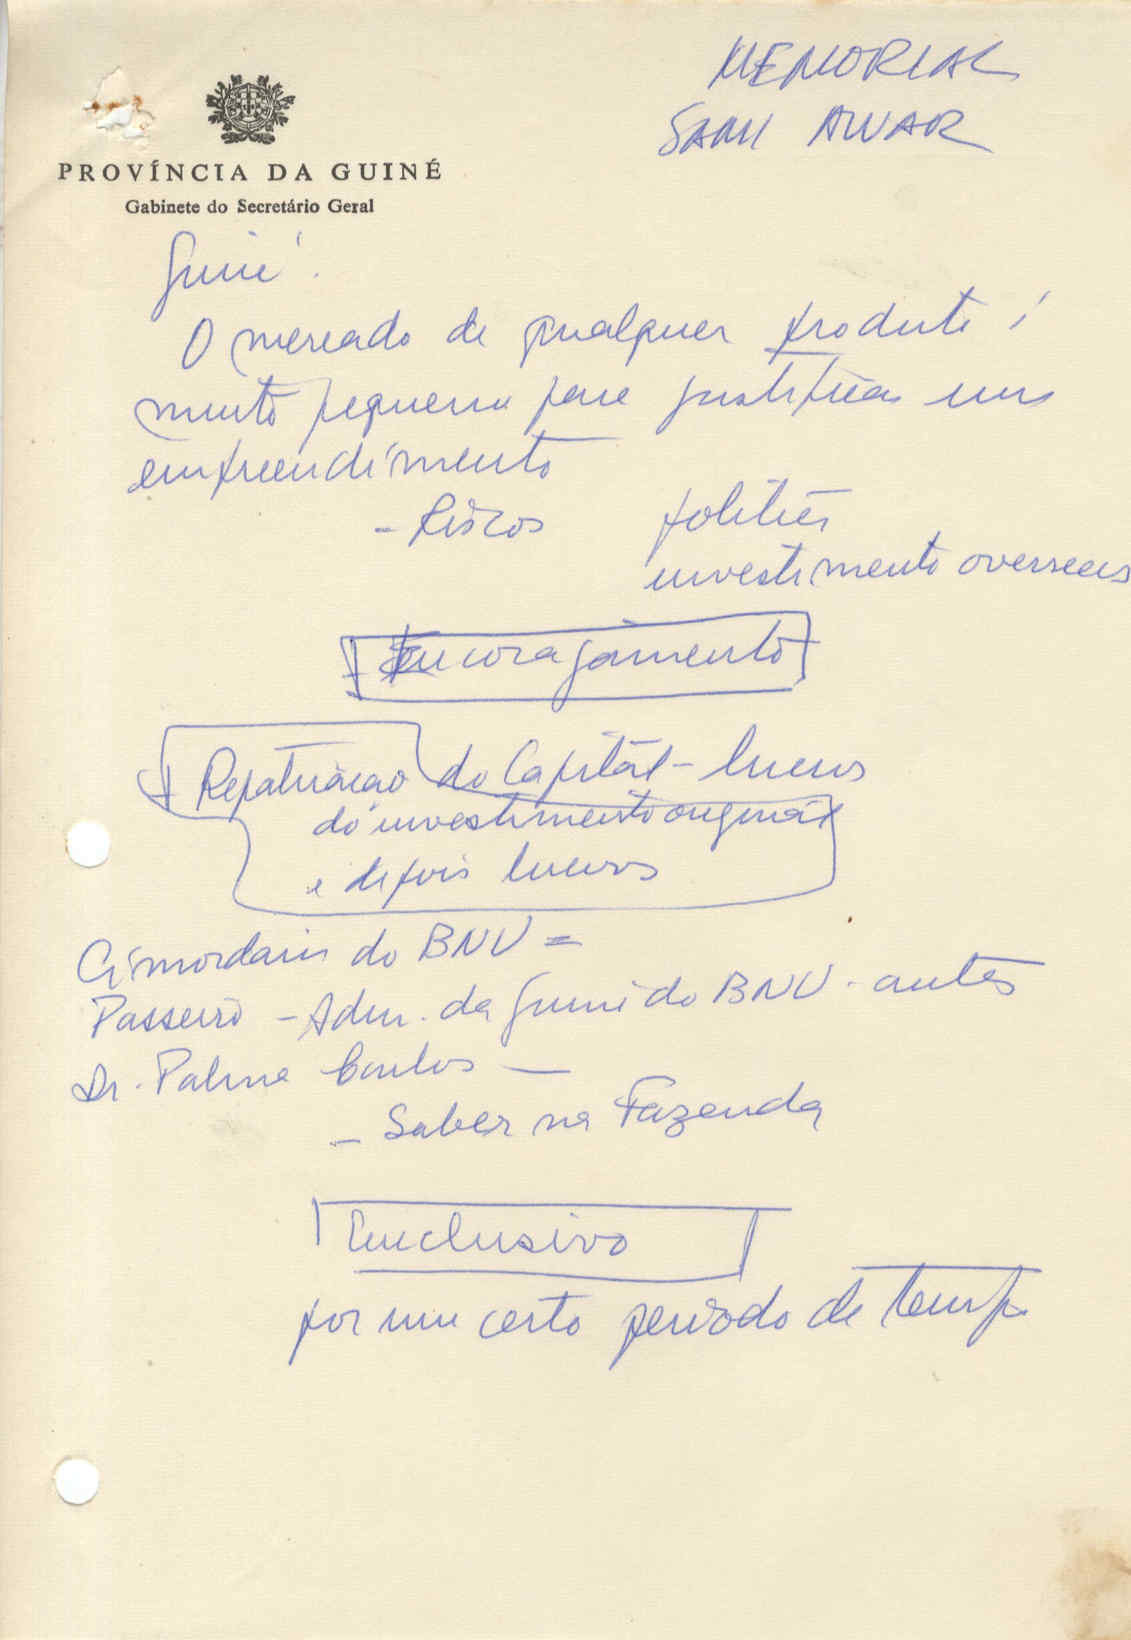 MEMORIAL
SAMI ANUAR
PROVÍNCIA DA GUINÉ
Gabinete do Secretário Geral
Guiné.
O mercado de qualquer produto é
muito pequeno para justificar um
empreendimento
- Riscos políticos
investimento overseas
Encorajamento
Repatriação do Capital - lucros
do investimento original
e depois lucros
do BNU =
Passeiro - Adm. da Guiné do BNU - antes
Dr. Palma Carlos —
- Saber na Fazenda
Exclusivo
por um certo período de tempo